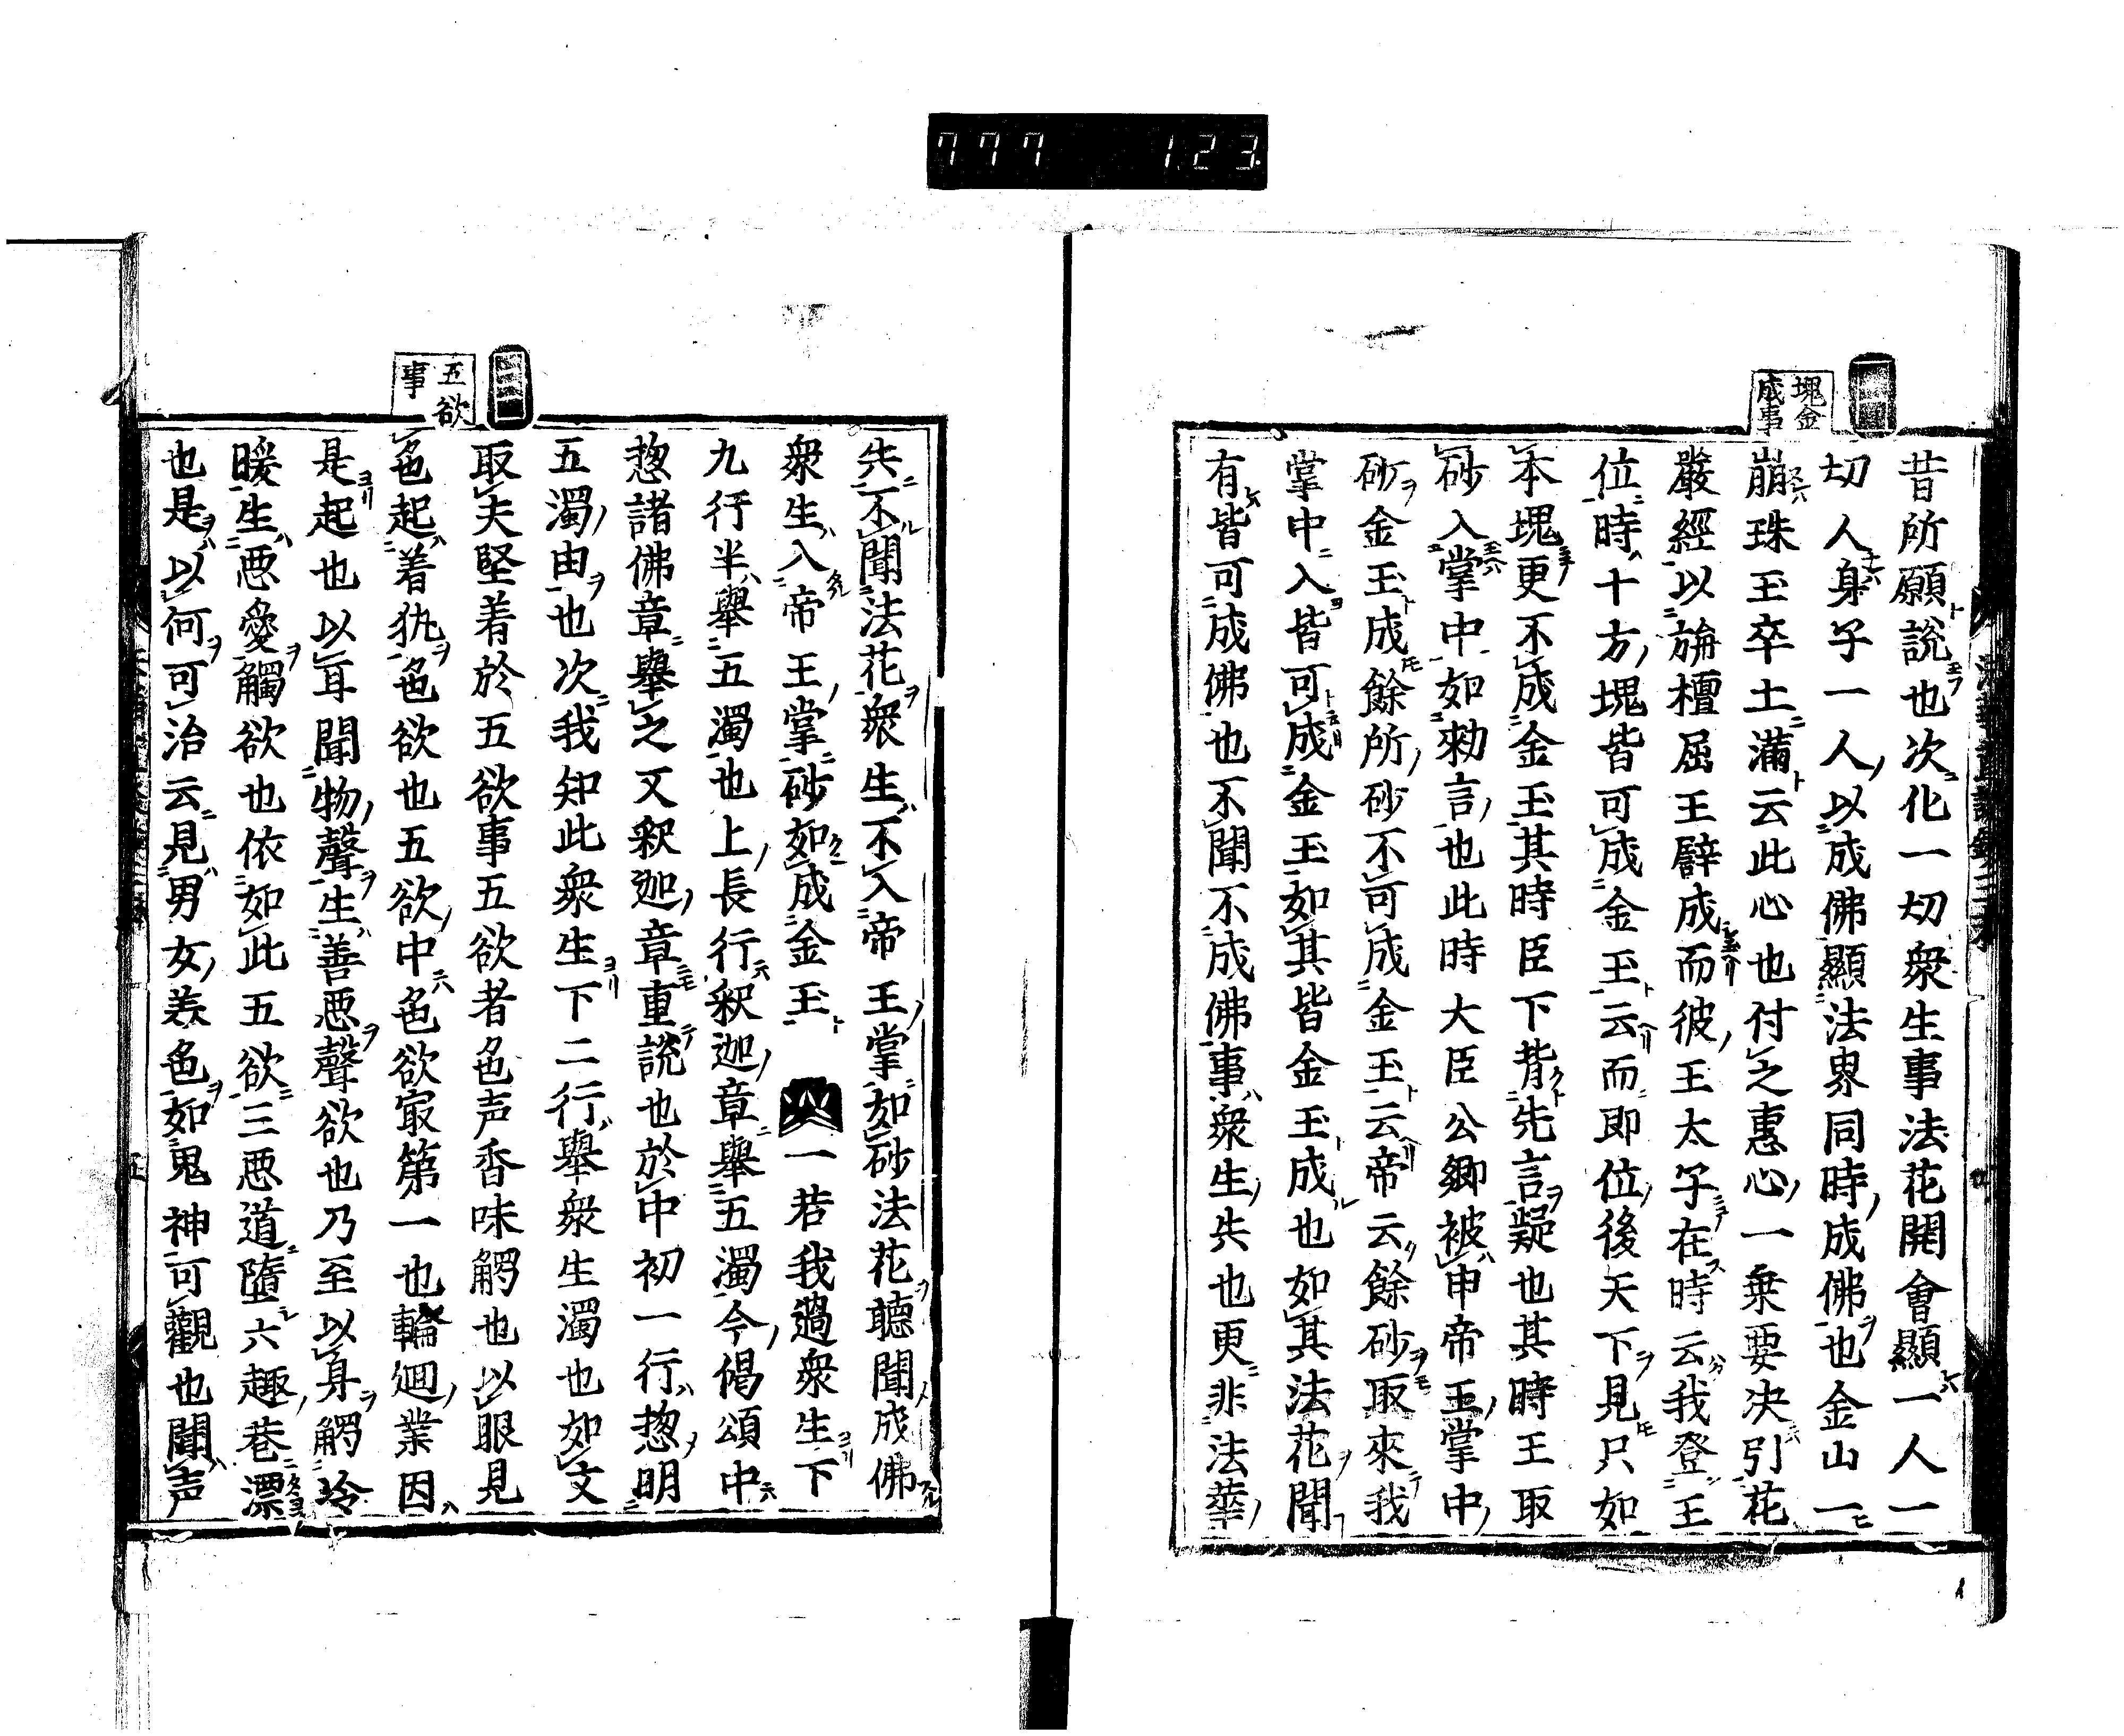 777 123
塊金
成事
昔所願說也次化一切衆生事法花開會顯一人一
切人身子一人以成佛顯法界同時成佛也金山一
崩珠玉卒土滿云此心也付之惠心一乗要决引花
嚴經以旃檀屈王辟成而彼王太子在時云我登王
位時十方塊皆可成金玉云而即位後天下見只如
本塊更不成金玉其時臣下背先言疑也其時王取
砂入掌中如勅言也此時大臣公卿被申帝王掌中
砂金玉成餘所砂不可成金玉云帝云餘砂取來我
掌中入皆可成金玉如其皆金玉成也如其法花聞
有皆可成佛也不聞不成佛事衆生失也更非法華
五欲
事
失不聞法花衆生不入帝王掌如砂法花聴聞成佛
衆生入帝王掌砂如成金玉 一若我過衆生下
九行半舉五濁也上長行釈迦章舉五濁今偈頌中
惣諸佛章舉之又釈迦章重說也於中初一行惣明
五濁由也次我知此衆生下二行舉衆生濁也如文
取夫堅着於五欲事五欲者色声香味觸也以眼見
色起着犱色欲也五欲中色欲㝡第一也輪廻業因
是起也以耳聞物聲生善悪聲欲也乃至以身觸冷
暖生悪愛觸欲也依如此五欲三悪道墮六趣巷漂
也是以何可治云見男女美色如鬼神可觀也聞声